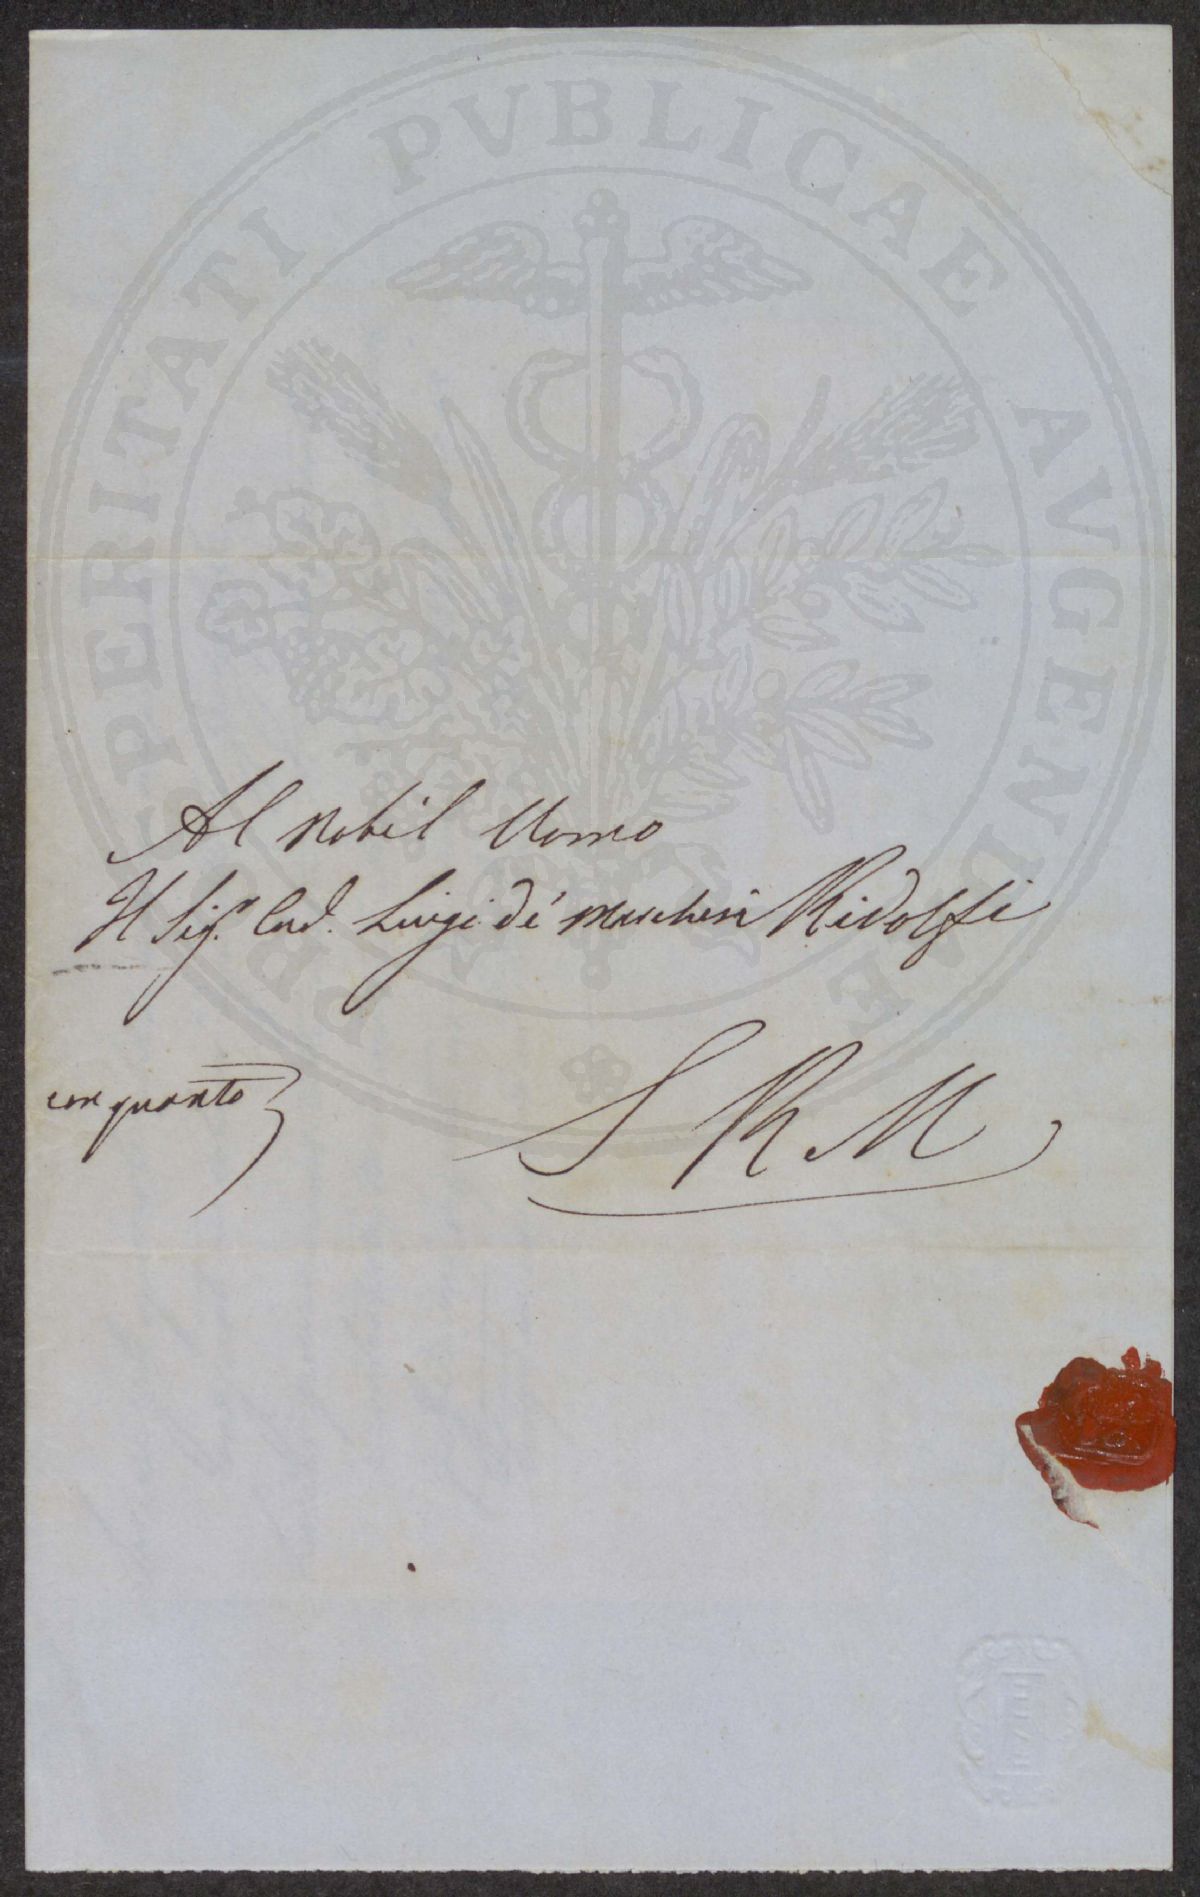 PROSPERITATI PVBLICAE AVGENDAE
Al Nobil Uomo
Il Sigr. Cad. Luigi de' Marchesi Ridolfi
con quanto
S R M